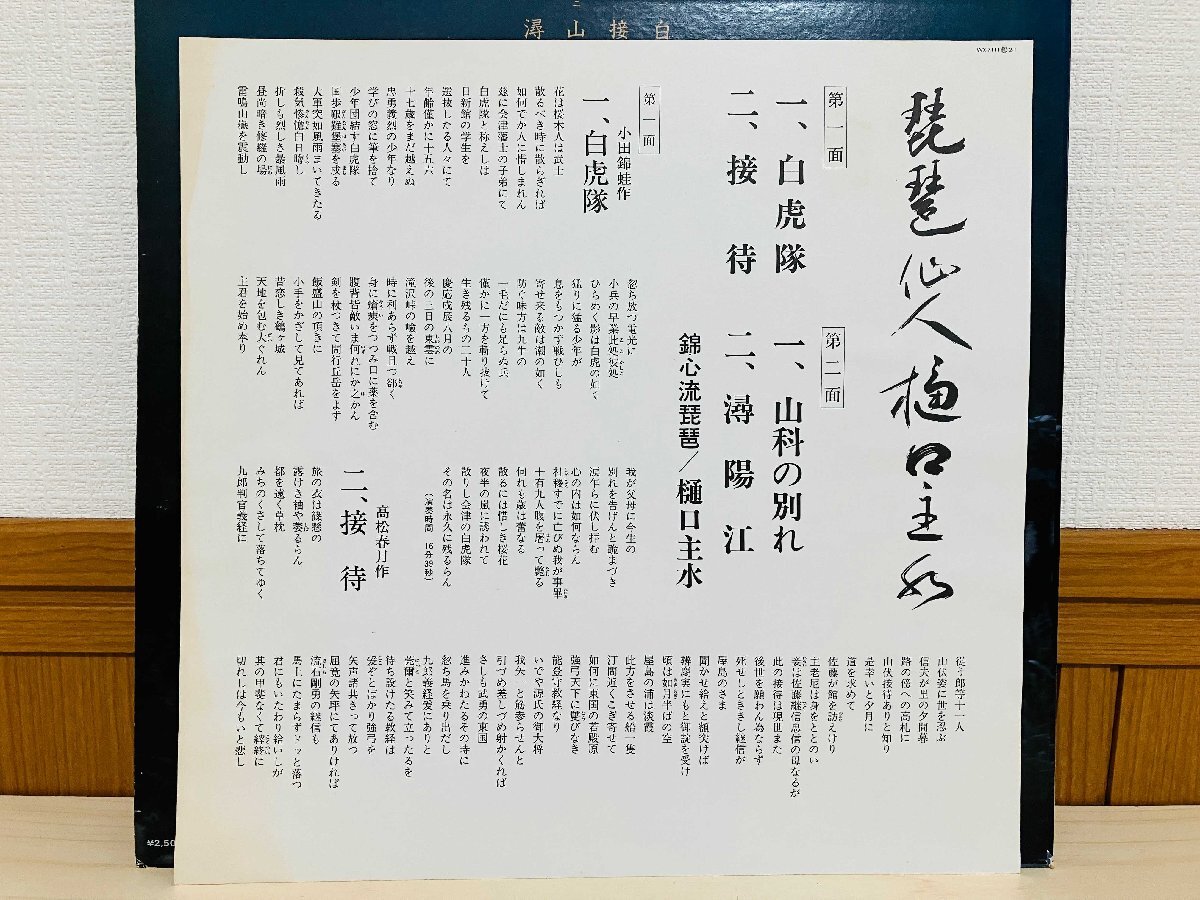 二
潯 山 接 白
琵琶仙人樋口主水
第一面
一、白虎隊
二、接待
第二面
一、山科の別れ
二、潯陽江
錦心流琵琶/樋口主水
第一面
小田錦蛙作
一、白虎隊
花は桜木人は武士
散るべき時に散らざれば
如何でか人に惜しまれん
茲に会津藩士の子弟にて
白虎隊と称えしは
日新館の学生を
選抜したる人々にて
年齢僅かに十五六
十七歳をまだ越えぬ
忠勇義烈の少年なり
学びの窓に筆を捨て
少年団結す白虎隊
国歩艱難堡塞を戍る
大軍突如風雨まいてきたる
殺気惨憺白日暗し
折しも烈しき暴風雨
昼尚暗き修羅の場
雷鳴山嶽を震動し
忽ち放つ電光に
小兵の早業此処彼処
ひらめく影は白虎の如く
猛りに猛る少年が
息をもつかず戦ひしも
寄せ来る敵は潮の如く
防ぐ味方は九牛の
一毛だにも足らぬ兵
僅かに一方を斬り抜けて
生き残るもの二十人
慶応戊辰八月の
後の三日の東雲に
滝沢峠の嶮を越え
時に利あらず戦日つ郤く
身に瘡痍をつつみ口に薬を含む
腹背皆敵いま何れにか之かん
剣を杖つきて間行丘岳をよず
飯盛山の頂きに
小手をかざして見てあれば
昔恋しき鶴ヶ城
天地を包む大ぐれん
主君を始め奉り
我が父母に今生の
別れを告げんと跪まづき
涙乍らに伏し拝む
心の内は如何ならん
社稷すでに亡びぬ我が事畢る
十有九人腹を屠って斃る
何れも歳は蕾なる
散るには惜しき桜花
夜半の嵐に誘われて
散りし会津の白虎隊
その名は永久に残るらん
(演奏時間 16分39秒)
高松春月作
二、接待
旅の衣は篠懸の
露けき袖や萎るらん
都を遠く草枕
みちのくさして落ちてゆく
九郎判官義経に
従う郎等十一人
山伏姿に世を忍ぶ
信夫が里の夕間暮
路の傍への高札に
山伏接待ありと知り
是幸いと夕月に
道を求めて
佐藤が館を訪えけり
主老尼は身をととのい
妾は佐藤継信忠信の母なるが
此の接待は現世また
後世を願わん為ならず
死せしとききし継信が
屋島のさま
聞かせ給えと額突けば
弁慶実にもと御説を受け
頃は如月半ばの空
屋島の浦は淡霞
此方をさせる船一隻
汀間近くこぎ寄せて
如何に東国の若殿原
強弓天下に並びなき
能登守教経なり
いでや源氏の御大将
我矢一と筋参らせんと
引づめ差しづめ射かくれば
さしも武勇の東国
進みかねたるその時に
忽ち馬を乗り出だし
九郎義経爰にありと
莞爾と笑みて立ったるを
待ち設けたる教経は
爰ぞとばかり強弓を
矢声諸共きって放つ
屈竟の矢坪にてありければ
流石剛勇の継信も
馬上にたまらずドッと落つ
君にもいたわり給いしが
其の甲斐なくて終焉に
切れしは今もいと悲し